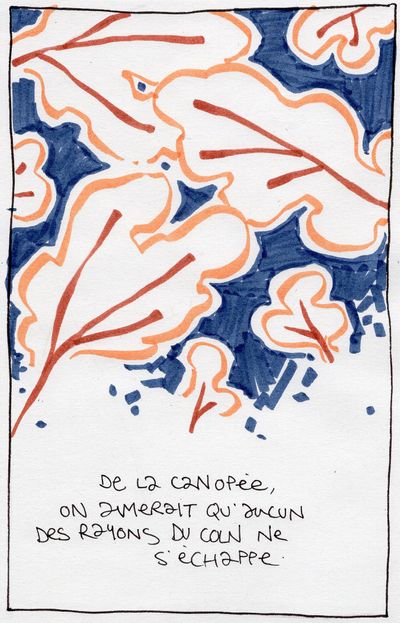 De La canopée,
on aimerait qu'aucun
Des rayons du coin ne
s'échappe.